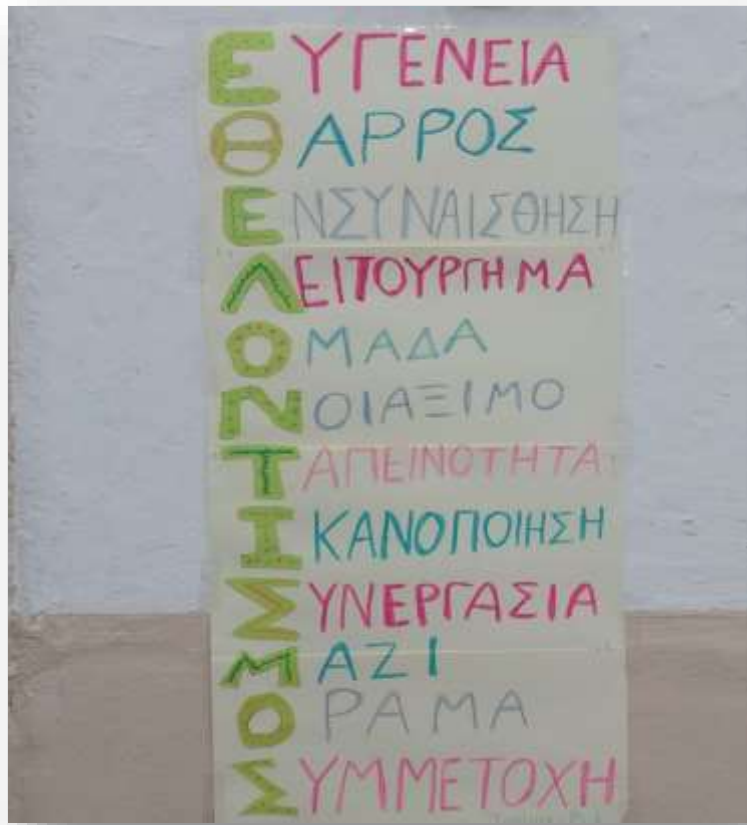 ΕΥΓΕΝΕΙΑ
ΘΑΡΡΟΣ
ΕΝΣΥΝΑΙΣΘΗΣΗ
ΛΕΙΤΟΥΡΓΗΜΑ
ΟΜΑΔΑ
ΝΟΙΑΞΙΜΟ
ΤΑΠΕΙΝΟΤΗΤΑ
ΙΚΑΝΟΠΟΙΗΣΗ
ΣΥΝΕΡΓΑΣΙΑ
ΜΑΖΙ
ΟΡΑΜΑ
ΣΥΜΜΕΤΟΧΗ